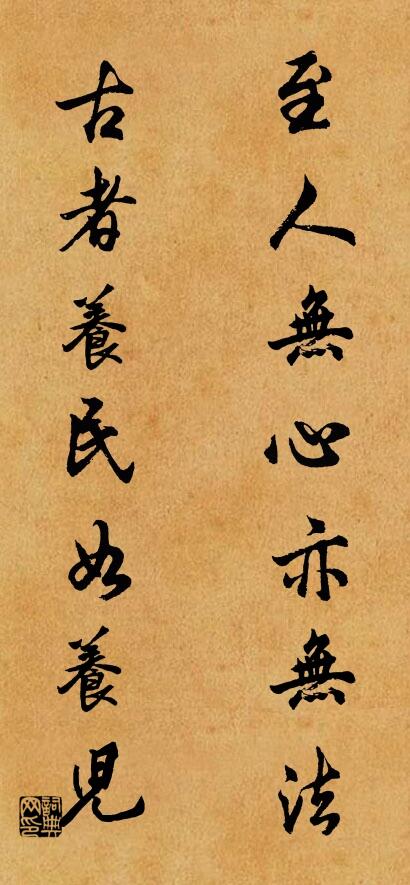 至人無心亦無法
古者養民如養児
詞典网印